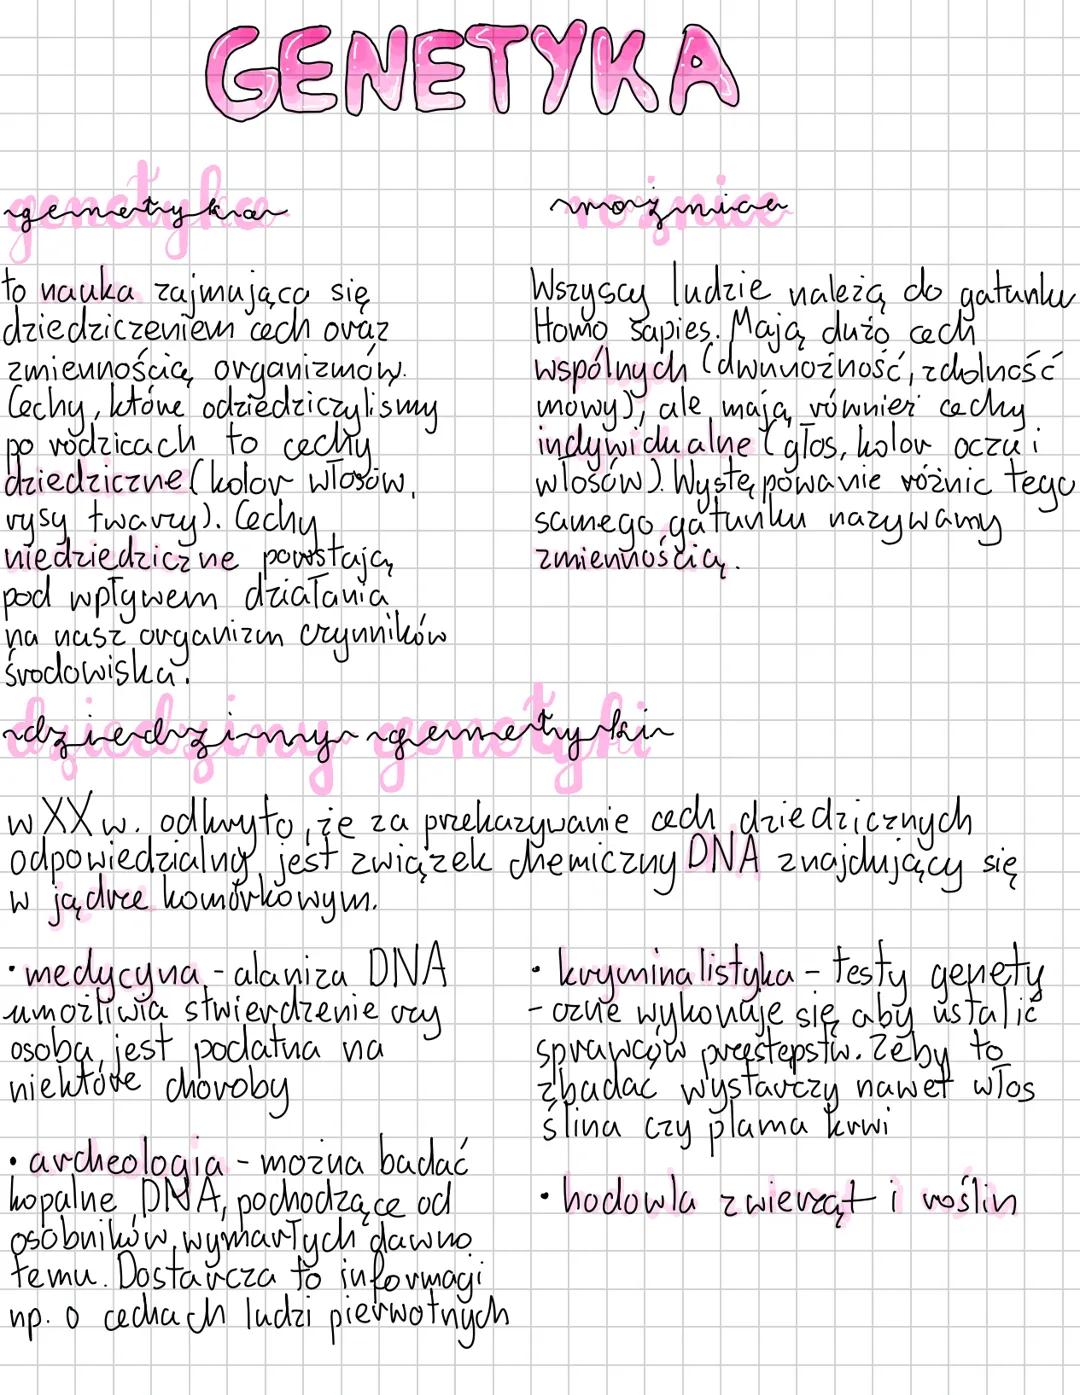 GENETYKA
genetyka
to nauka zajmująca się
dziedziczeniem cech oraz
zmiennością organizmów.
Cechy, które odziedziczyliśmy
po rodzicach to cechy
dziedziczne (kolor włosów,
rysy twarzy). Cechy
niedziedziczne powstają
pod wpływem działania
na nasz organizm czynników
środowiska.
różnice
Wszyscy ludzie należą do gatunku
Homo sapies. Mają dużo cech
wspólnych (dwunożność, zdolność
mowy), ale mają również cechy
indywidualne (głos, kolor oczu i
włosów). Występowanie różnic tego
samego gatunku nazywamy
zmiennością.
dziedziny genetyki
w XX w. odkryto, że za przekazywanie cech dziedzicznych
odpowiedzialny jest związek chemiczny DNA znajdujący się
w jądrze komórkowym.
• medycyna - alaniza DNA
umożliwia stwierdzenie czy
osoba jest podatna na
niektóre choroby
• archeologia - można badać
kopalne DNA, pochodzące od
osobników wymarłych dawno
temu. Dostarcza to informagi
np. o cechach ludzi pierwotnych
• kryminalistyka - testy genety
- czne wykonuje się aby ustalić
sprawców przestępstw. Żeby to
zbadać wystarczy nawet włos
ślina czy plama krwi
• hodowla zwierząt i roślin